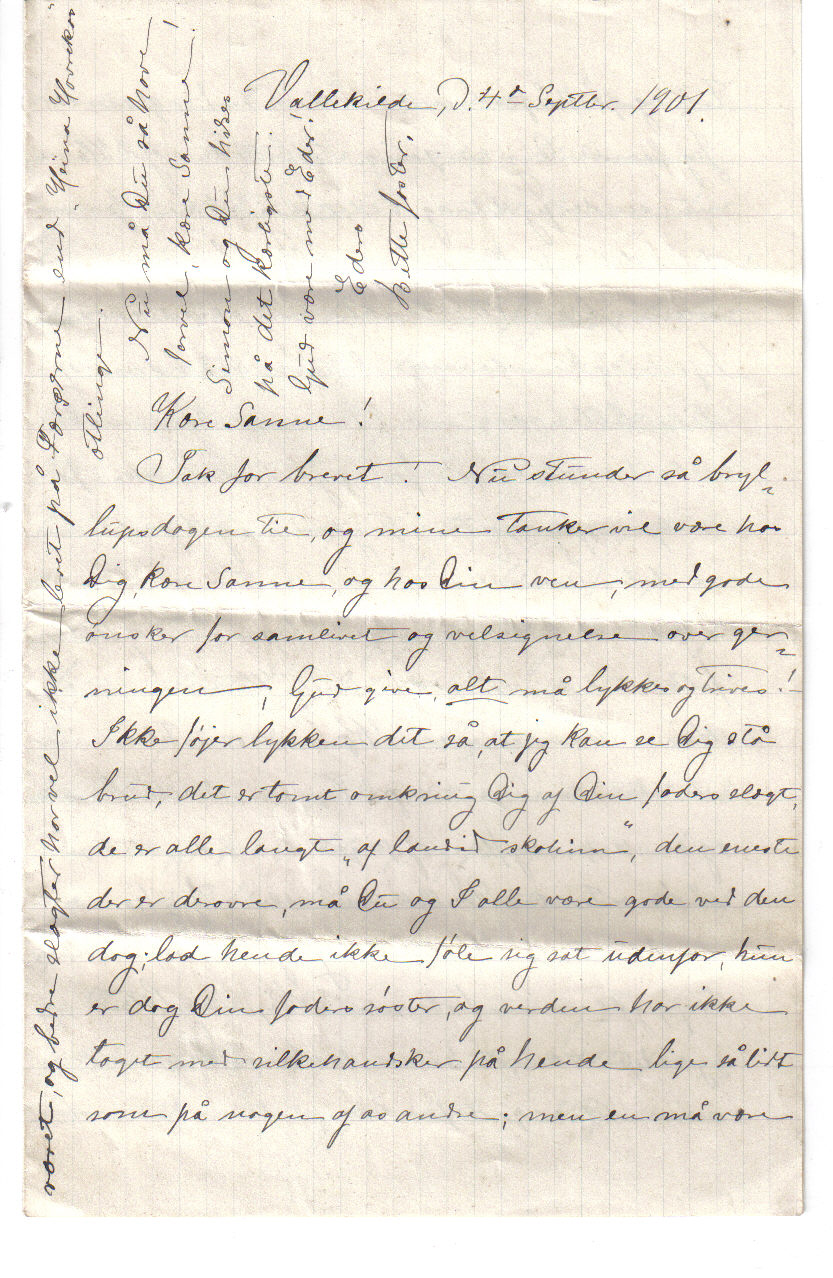 Vallekilde, d. 4de Septbr. 1901.
Kære Sanne!
Tak for brevet! Nu stunder så bryl-
lupsdagen til, og mine tanker vil være hos
Dig, kære Sanne, og hos Din ven, med gode
ønsker for samlivet og velsignelse over ger-
ningen, Gud give, alt må lykkes og trives!
Ikke føjer lykken det så, at jeg kan se Dig stå
brud, det er tomt omkring Dig af Din faders slægt,
de er alle langt "af landið skolin", den eneste
der er derovre, må Du og I alle være gode ved den
dag; lad hende ikke føle sig sat udenfor, hun
er dog Din faders søster, og verden har ikke
taget med silkehandsker på hende lige så lidt
som på nogen af os andre; men en må være
været, og bedre slægter har vel ikke levet på Færøerne end
ætlinge.
Nu må Du så have
farvel, kære Sanne!
Simon og Du hilses
på det kærligste.
Gud være med Eder!
Eders
Bette faster.